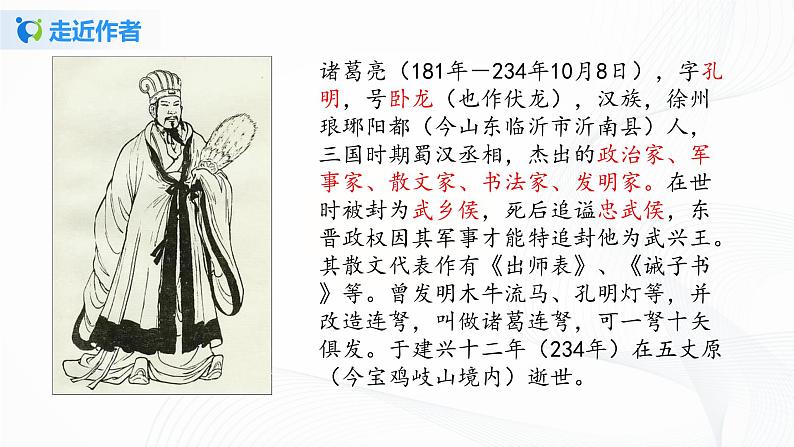 走近作者
诸葛亮（181年－234年10月8日），字孔
明，号卧龙（也作伏龙），汉族，徐州
琅琊阳都（今山东临沂市沂南县）人，
三国时期蜀汉丞相，杰出的政治家、军
事家、散文家、书法家、发明家。在世
时被封为武乡侯，死后追谥忠武侯，东
晋政权因其军事才能特追封他为武兴王。
其散文代表作有《出师表》、《诫子书
》等。曾发明木牛流马、孔明灯等，并
改造连弩，叫做诸葛连弩，可一弩十矢
俱发。于建兴十二年（234年）在五丈原
（今宝鸡岐山境内）逝世。